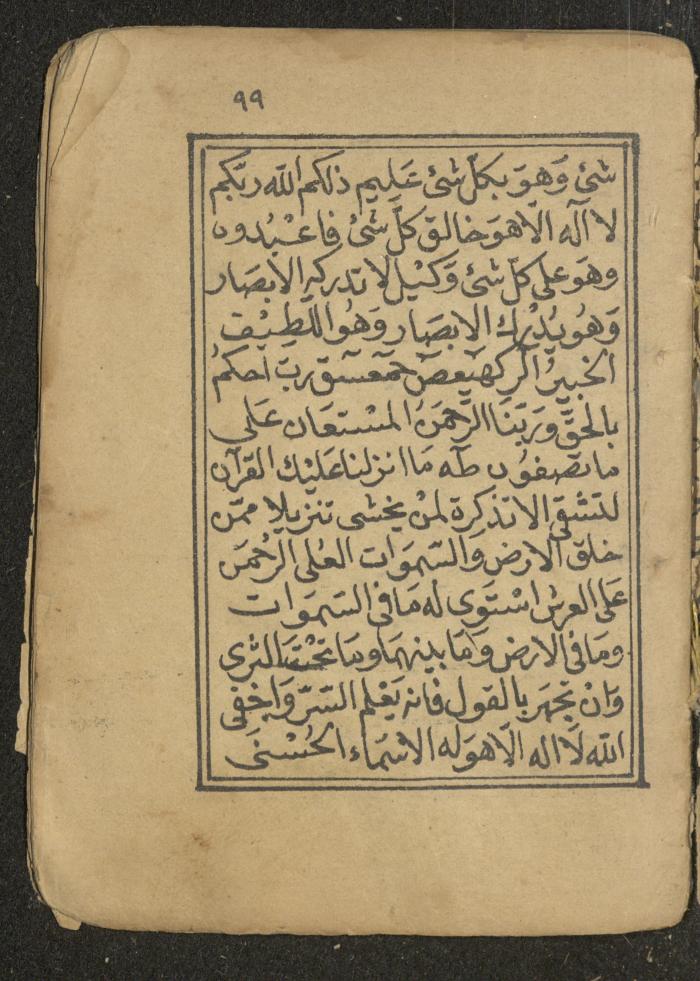 ٩٩
شئ وَهوَ بكلّ شئ عَليم ذلكم اللّه ربّكم
لا اله الّا هوَ خالق كلّ شئ فاعْبُدوه
وهَو على كلّ شئ وَكيْل لا تدركه الابصَار
وَهُو يُدْرك الابصَار وَهُو اللّطيْف
الخبيرُ الٓر كهيٓعٓصٓ حمٓعٓسٓقٓ ربّ احكمُ
بالحقّ وَرَبّنَا الرّحمَنُ المسْتعَان عَلى
ما تصفوُن طٰه مَا انزلنا عَليْك القرآن
لتشقى الا تذكرة لمنْ يخشى تنزيلا ممّن
خلق الارض وَالسّموَات العُلى الرّحمَن
عَلى العرش اسْتوَى له مَا فى السّمَوات
ومَا فى الارض وَمَا بينهمَا ومَا تحْتَ الثرى
وَانْ تجْهَر بالقول فانه يَعْلم السّرّ وَاخفى
اللّه لَا اله الّا هوَ له الاسْمَاء الحُسْنَى